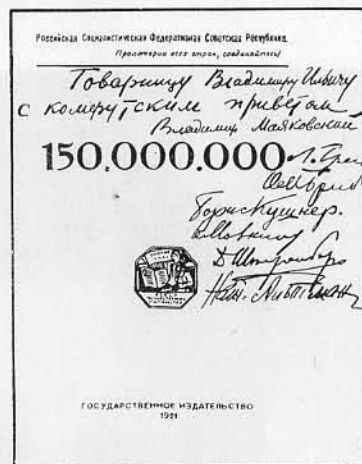 Российская Социалистическая Федеративная Советская Республика.
Пролетарии всех стран, соединяйтесь!
Товарищу Владимиру Ильичу
с комфутским приветом
Владимир Маяковский
150.000.000
Л. Брик
О. М. Брик
Борис Кушнер.
Д. Штеренберг
Нат. Альтман
ГОСУДАРСТВЕННОЕ ИЗДАТЕЛЬСТВО
1921